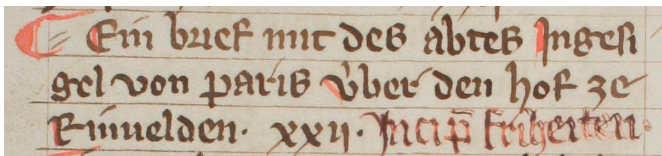 ¶ Ein brief mit des abtes Ingesi
gel von paris vͤber den hof ze
Rinuelden· xxij· Incip̄ friheiten·